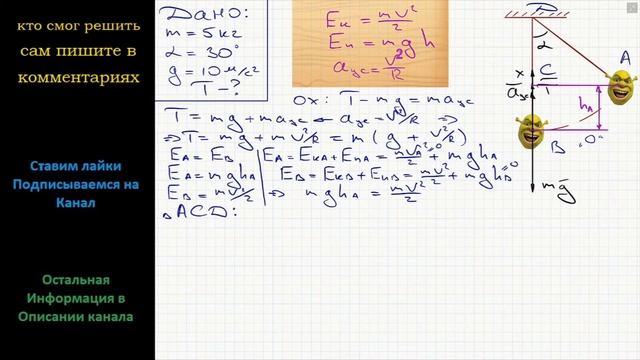 кто смог решить
сам пишите в
комментариях
Ставим лайки
Подписываемся на
Канал
Остальная
Информация в
Описании канала
Дано:
m = 5 кг
α = 30°
g = 10 м/с²
T - ?
Eк = mv²/2
Eп = mgh
aцс = v²/R
ox: T - mg = maцс
T = mg + maцс ← aцс = v²/R ⇒
⇒ T = mg + m v²/R = m(g + v²/R)
EA = EB
EA = mghA
EB = mv²/2
EA = EкA + EпA = mvA²/2 =0 + mghA
EB = EкB + EпB = mv²/2 + mghB =0
⇒ mghA = mv²/2
△ACD:
D
α
A
x
C
aцс
T
hA
B
"0"
mg